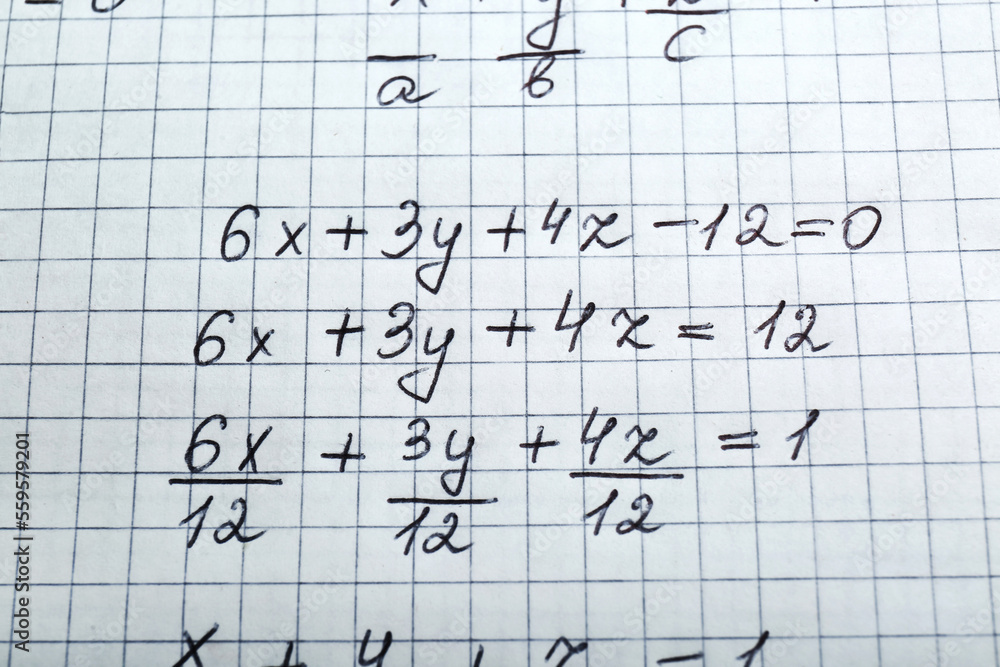 a b c
6x + 3y + 4z - 12 = 0
6x + 3y + 4z = 12
6x/12 + 3y/12 + 4z/12 = 1
Adobe Stock | #559579201